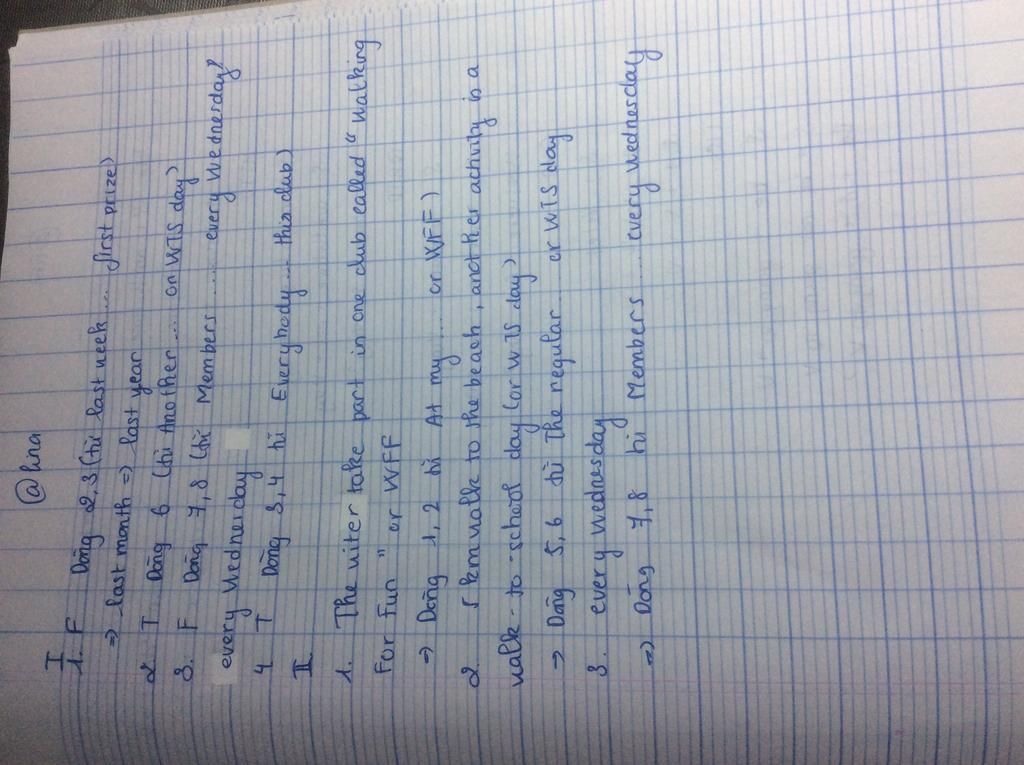 @lina
I
1. F Dòng 2,3 (từ last week ... first prize)
=> last month => last year
2. T Dòng 6 (từ Another ... on WTS day)
3. F Dòng 7,8 (từ Members .... every Wednesday)
every Wednesday
4 T Dòng 3,4 từ Everybody ... this club)
II
1. The writer take part in one club called "walking
For Fun" or WFF
=> Dòng 1,2 từ At my ... or WFF)
2. 5 km walk to the beach, another activity is a
walk-to-school day (or WTS day)
-> Dòng 5,6 từ The regular ... or WTS day
3. every Wednesday
=> Dòng 7,8 từ Members .... every Wednesday